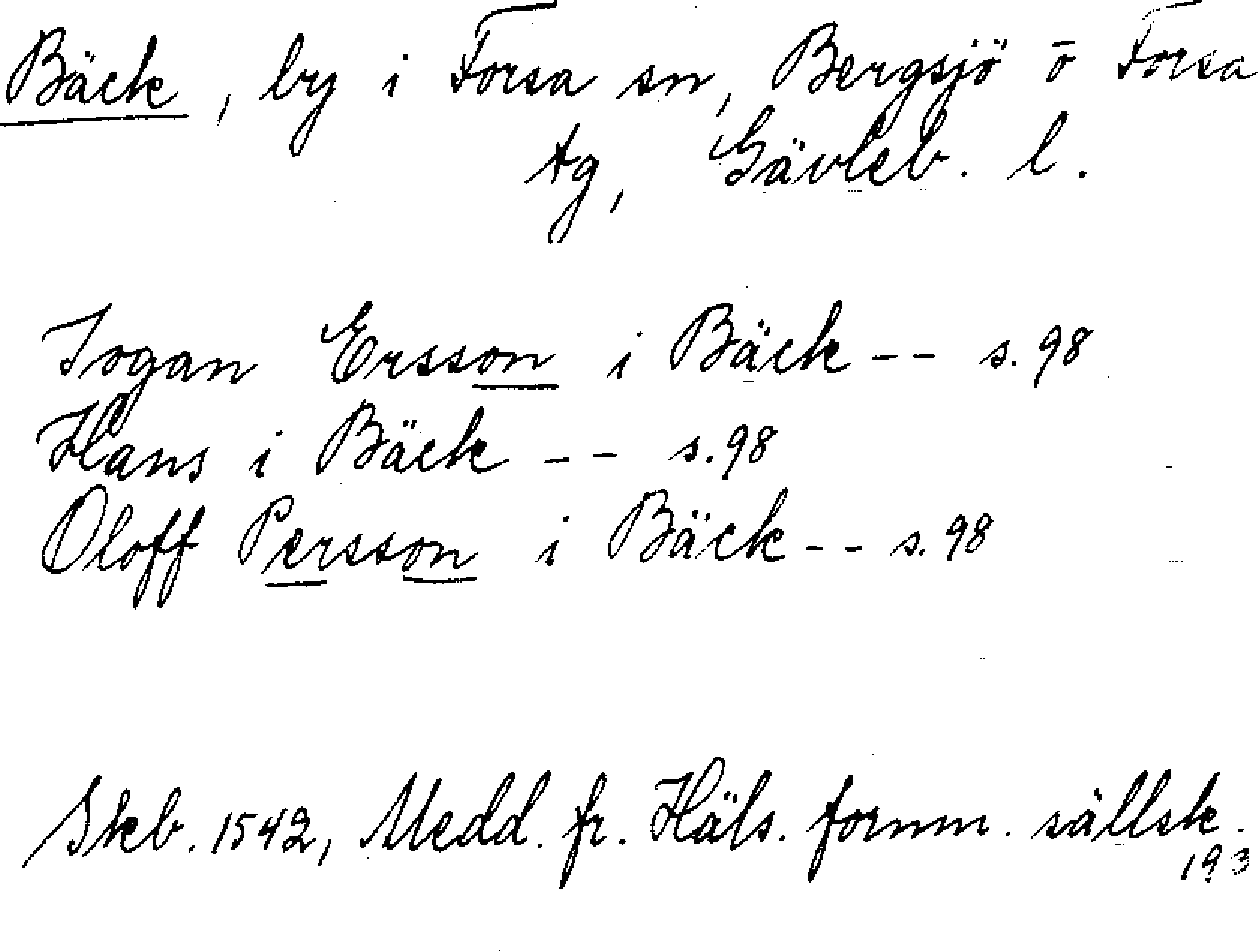 Bäck, by i Forsa sn, Bergsjö o Forsa
tg, Gävleb. l.
Jogan Ersson i Bäck -- s. 98
Hans i Bäck -- s. 98
Oloff Persson i Bäck -- s. 98
Skb. 1542, Medd. fr. Häls. fornm. sällsk.
193